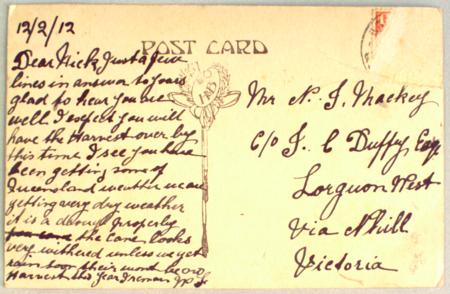 12/2/12
POST CARD
Dear Nick, Just a few
lines in answer to yours
glad to hear you are
well I expect you will
have the Harvest over by
this time I see you have
been getting some of
Queensland weather we are
getting very dry weather
it is a drought properly
the Cane looks
very withered unless we get
rain soon their wont be
Harvest this year
Mr N. J. Mackey
C/o J. C Duffy Esq.
Lorquon West
Via Nhill
Victoria